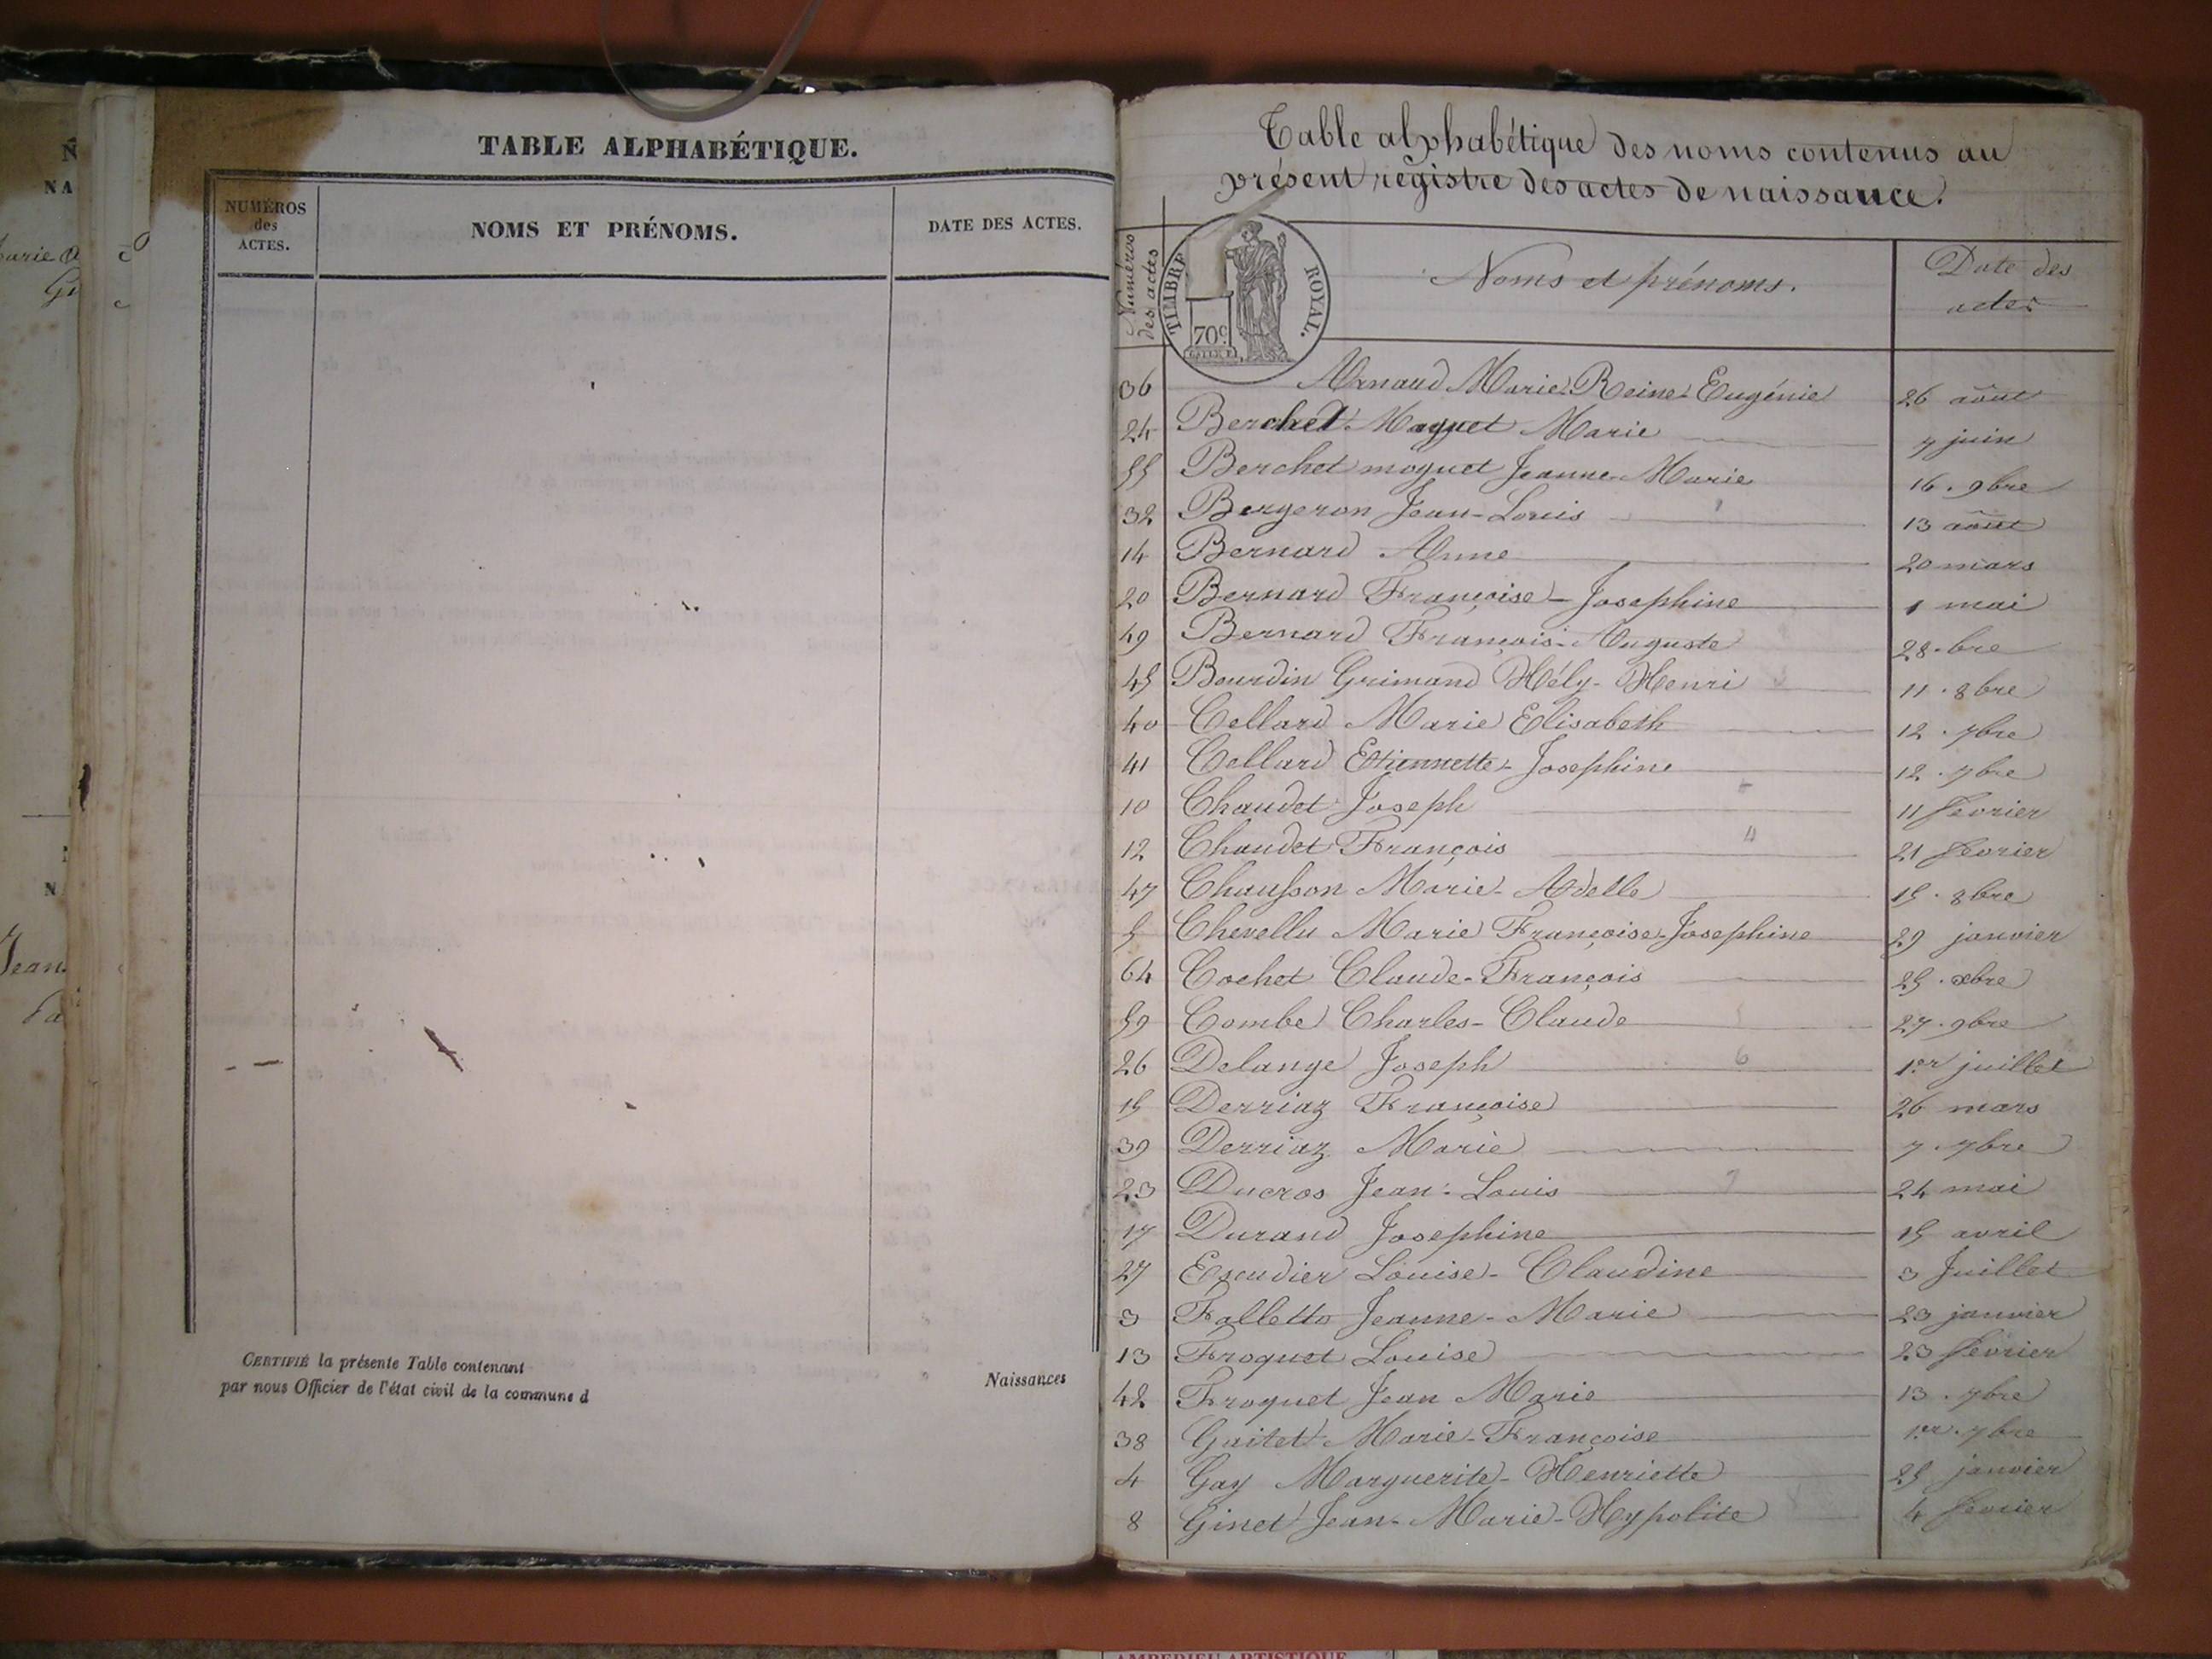 TABLE ALPHABÉTIQUE.
NUMÉROS
des
ACTES.
NOMS ET PRÉNOMS.
DATE DES ACTES.
CERTIFIÉ la présente Table contenant
par nous Officier de l'état civil de la commune d
Naissances
Table alphabétique des noms contenus au
présent registre des actes de naissance.
Numéros
des actes
TIMBRE ROYAL.
70c
Noms et prénoms.
Date des
actes
36 Arnaud Marie Reine Eugénie 26 août
24 Berchet Moguet Marie 7 juin
55 Berchet moguet Jeanne Marie 16. 9bre
32 Bergeron Jean-Louis 13 août
14 Bernard Anne 20 mars
20 Bernard Françoise-Josephine 1 mai
49 Bernard François-Auguste 28.bre
45 Bourdin Grimaud Hély-Henri 11. 8bre
40 Cellard Marie Elisabeth 12. 7bre
41 Cellard Etiennette-Josephine 12. 7bre
10 Chaudet Joseph 11 février
12 Chaudet François 4 21 février
47 Chausson Marie-Adelle 15. 8bre
5 Chevellu Marie Françoise-Josephine 29 janvier
64 Cochet Claude-François 25. xbre
59 Combe Charles-Claude 27. 9bre
26 Delange Joseph 6 1er juillet
15 Derriaz Françoise 26 mars
39 Derriaz Marie 7. 7bre
23 Ducros Jean-Louis 7 24 mai
17 Durand Josephine 15 avril
27 Escudier Louise-Claudine 3 Juillet
3 Falletto Jeanne-Marie 23 janvier
13 Froquet Louise 23 février
42 Froquet Jean Marie 13. 7bre
38 Gaitet Marie-Françoise 1er. 7bre
4 Gay Marguerite-Henriette 25 janvier
8 Ginet Jean-Marie-Hypolite 4 février